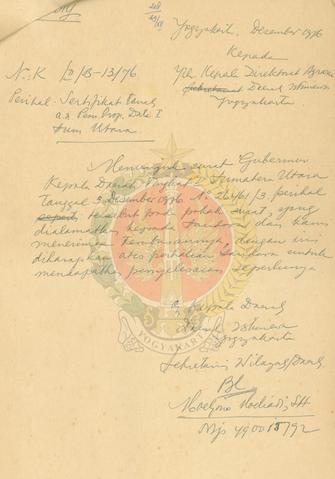 Yogyakarta, Desember 1976
Kepada
No: K /D/B-13/76
Yth. Kepala Direktorat Agraria
Perihal: Sertifikat tanah
Daerah Istimewa
a.n Pem. Prop. Dati I
Yogyakarta
Sum Utara
Menunjuk surat Gubernur
Kepala Daerah Tingkat I Sumatera Utara
tanggal 9 Desember 1976 No. /3 perihal
tersebut pada pokok surat, yang
dialamatkan kepada Saudara dan kami
menerima tembusannya, dengan ini
diharapkan atas perhatian Saudara untuk
mendapatkan penyelesaian seperlunya
Kepala Daerah
Daerah Istimewa
Yogyakarta
Sekretaris Wilayah/Daerah
YOGYAKARTA